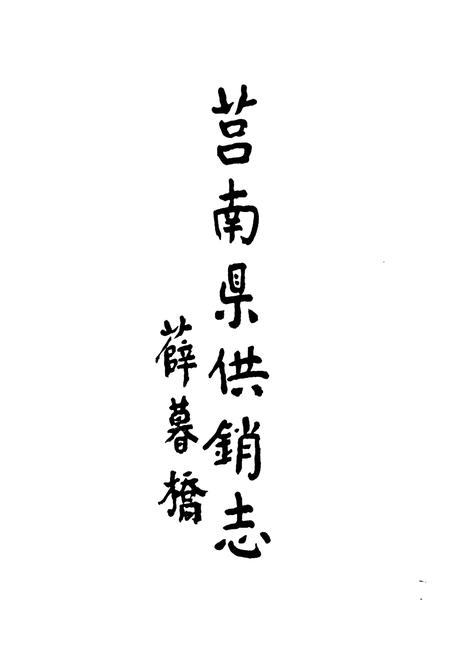 莒南县供銷志
薛暮橋